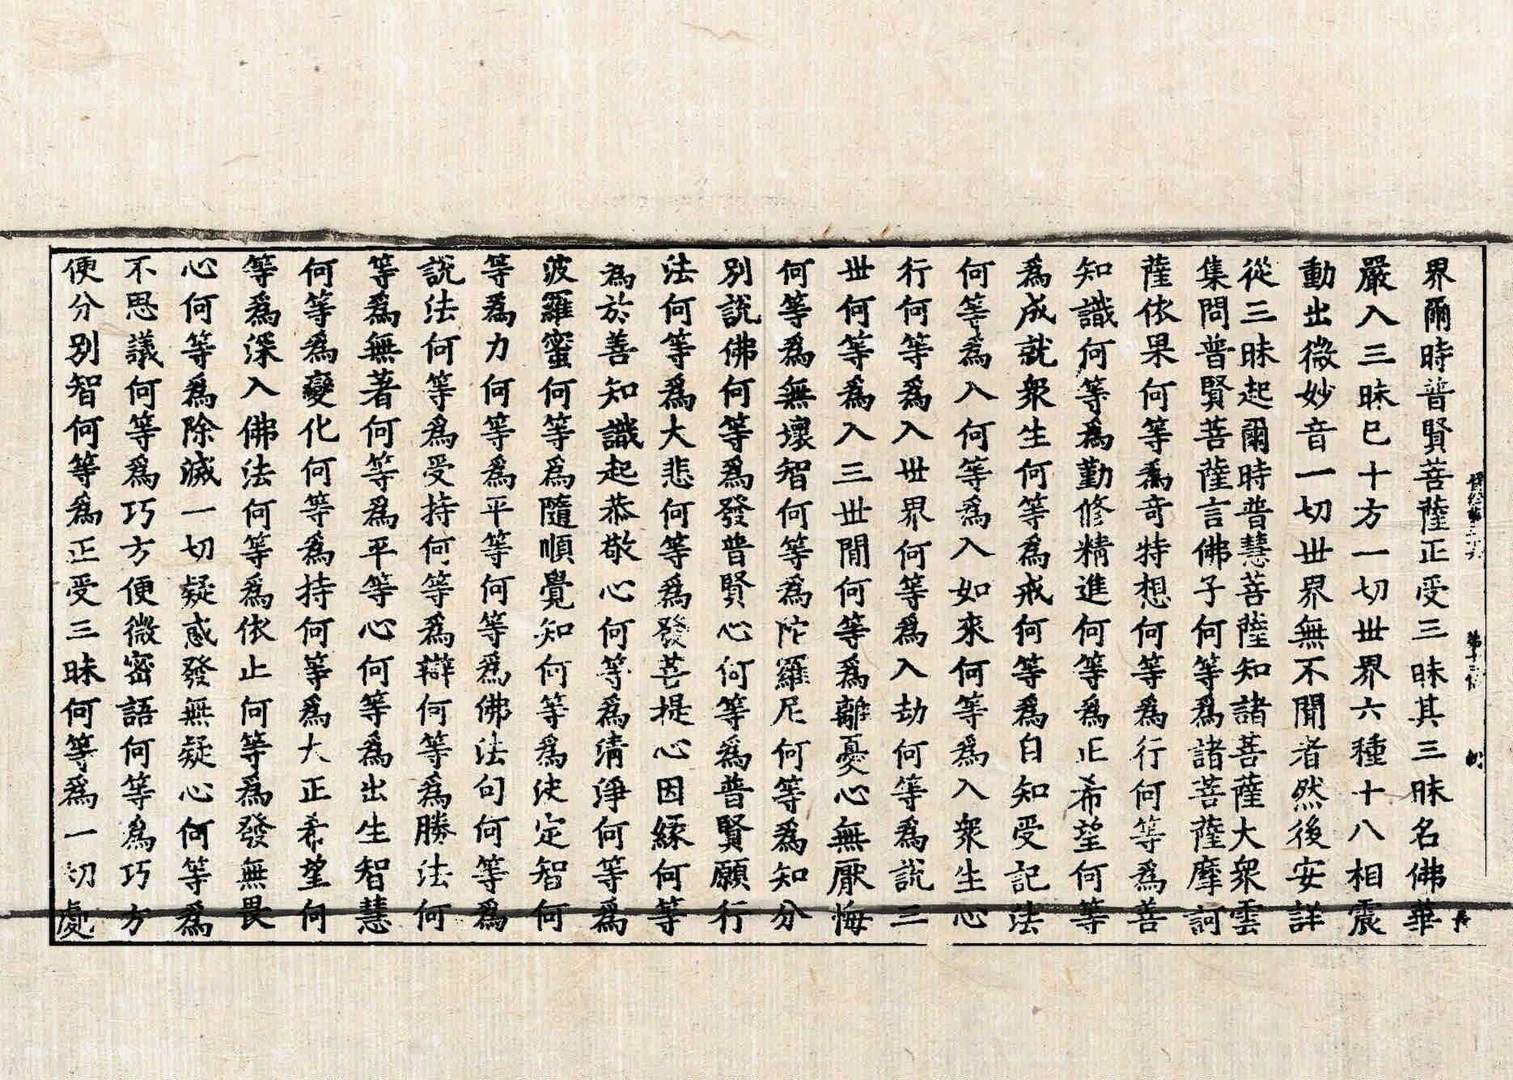 界爾時普賢菩薩正受三昧其三昧名佛華
嚴入三昧已十方一切世界六種十八相震
動出微妙音一切世界無不聞者然後安詳
從三昧起爾時普慧菩薩知諸菩薩大衆雲
集問普賢菩薩言佛子何等爲諸菩薩摩訶
薩依果何等爲奇特想何等爲行何等爲善
知識何等爲勤修精進何等爲正希望何等
爲成就衆生何等爲戒何等爲自知受記法
何等爲入何等爲入如來何等爲入衆生心
行何等爲入世界何等爲入劫何等爲說三
世何等爲入三世間何等爲離憂心無厭悔
何等爲無壞智何等爲陀羅尼何等爲知分
別說佛何等爲發普賢心何等爲普賢願行
法何等爲大悲何等爲發菩提心因緣何等
爲於善知識起恭敬心何等爲清淨何等爲
波羅蜜何等爲隨順覺知何等爲決定智何
等爲力何等爲平等何等爲佛法句何等爲
說法何等爲受持何等爲辯何等爲勝法何
等爲無著何等爲平等心何等爲出生智慧
何等爲變化何等爲持何等爲大正希望何
等爲深入佛法何等爲依止何等爲發無畏
心何等爲除滅一切疑惑發無疑心何等爲
不思議何等爲巧方便微密語何等爲巧方
便分別智何等爲正受三昧何等爲一切處